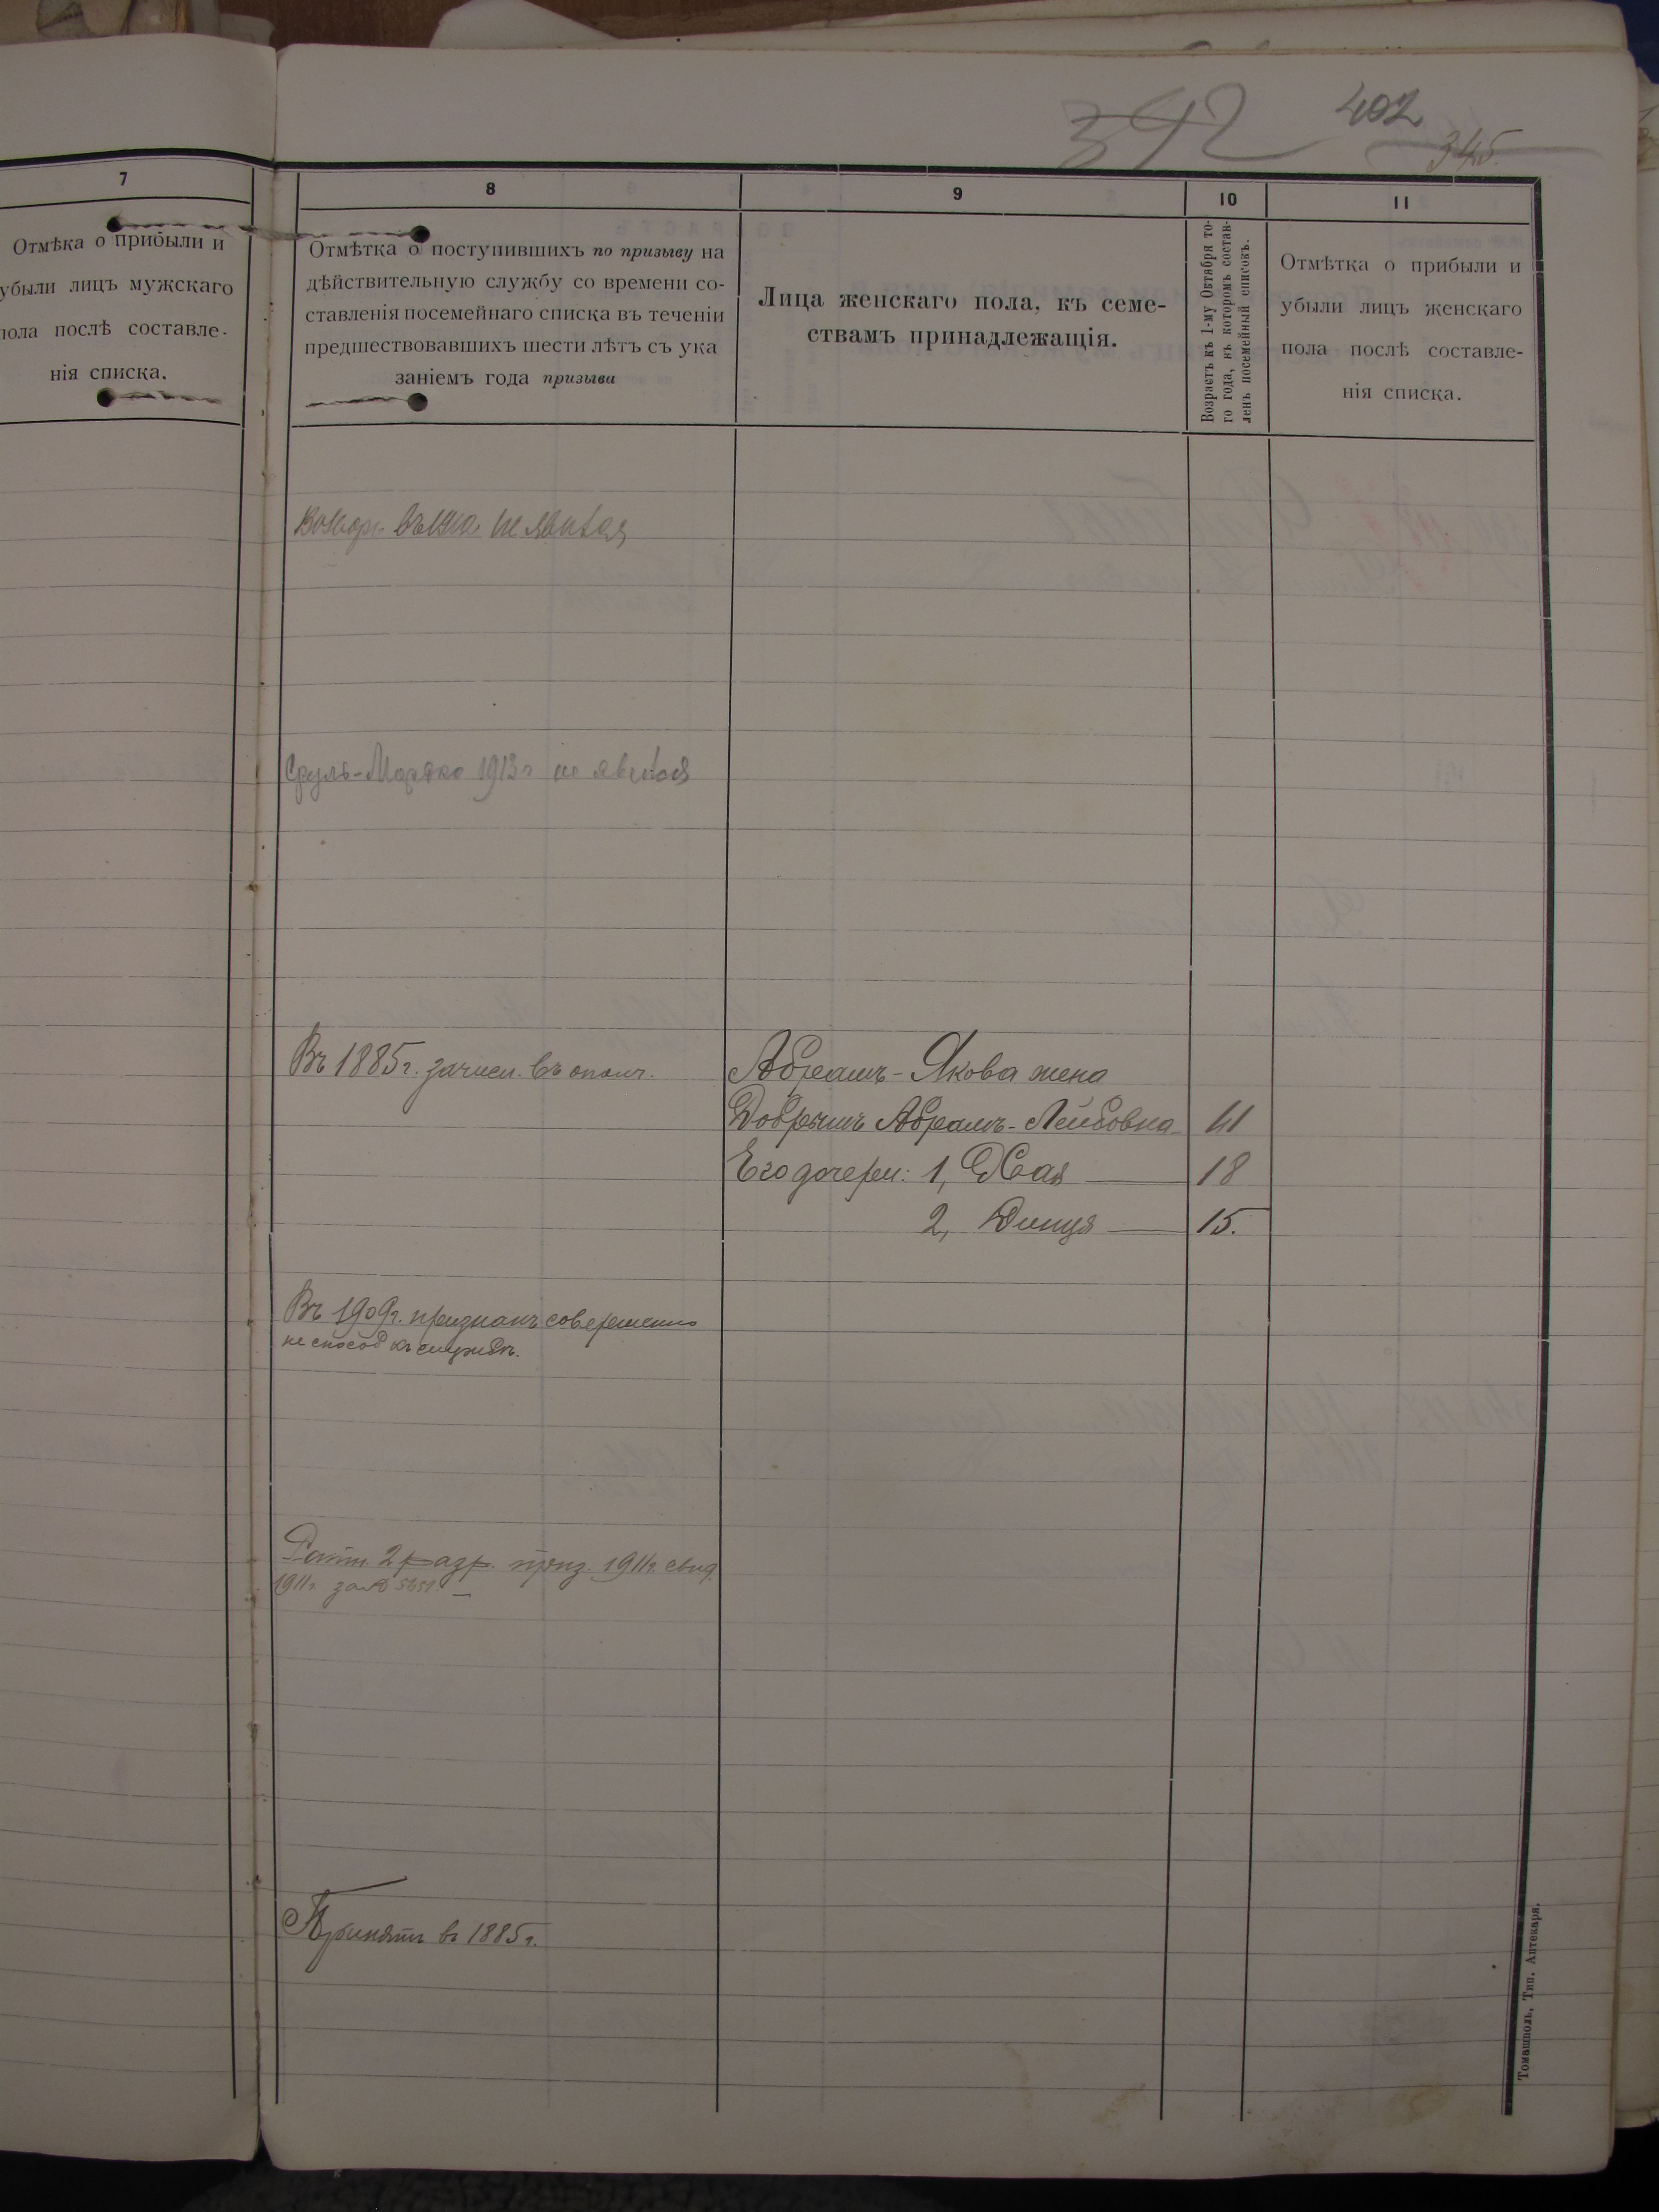 392 402
345.
7
Отмѣка о прибыли и
убыли лицъ мужскаго
пола послѣ составле-
нія списка.
8
Отмѣтка о поступившихъ по призыву на
дѣйствительную службу со времени со-
ставленія посемейнаго списка въ теченіи
предшествовавшихъ шести лѣтъ съ ука
заніемъ года призыва
9
Лица женскаго пола, къ семе-
ствамъ принадлежащія.
10
Возрастъ къ 1-му Октября то-
го года, къ которомъ состав-
ленъ посемейный списокъ.
11
Отмѣтка о прибыли и
убыли лицъ женскаго
пола послѣ составле-
нія списка.
не явился
Сруль-Мордко 1913 г не явился
Въ 1885 г. зачисл. въ ополч.
Абрамъ-Якова жена
Добрышъ Абрамъ-Лейбовна 41
Его дочери: 1, Хая 18
2, Динця 15.
Въ 1909 г. признанъ совершенно
не способ къ службѣ.
Ратн. 2 разр. приз. 1911 г. свид.
1911 г. за №
Принятъ въ 1885 г.
Томашполь, Тип. Аптекаря.